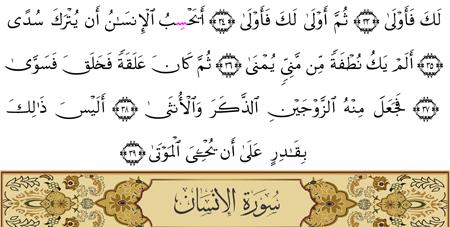 لَكَ فَأَوْلَىٰ ﴿٣٣﴾ ثُمَّ أَوْلَىٰ لَكَ فَأَوْلَىٰ ﴿٣٤﴾ أَيَحْسِبُ الْإِنسَٰنُ أَن يُتْرَكَ سُدًى
﴿٣٥﴾ أَلَمْ يَكُ نُطْفَةً مِّن مَّنِيٍّ يُمْنَىٰ ﴿٣٦﴾ ثُمَّ كَانَ عَلَقَةً فَخَلَقَ فَسَوَّىٰ
﴿٣٧﴾ فَجَعَلَ مِنْهُ الزَّوْجَيْنِ الذَّكَرَ وَالْأُنثَىٰ ﴿٣٨﴾ أَلَيْسَ ذَٰلِكَ
بِقَٰدِرٍ عَلَىٰ أَن يُحْـِۧيَ الْمَوْتَىٰ ﴿٣٩﴾
سُورَةُ الْإِنْسَانِ